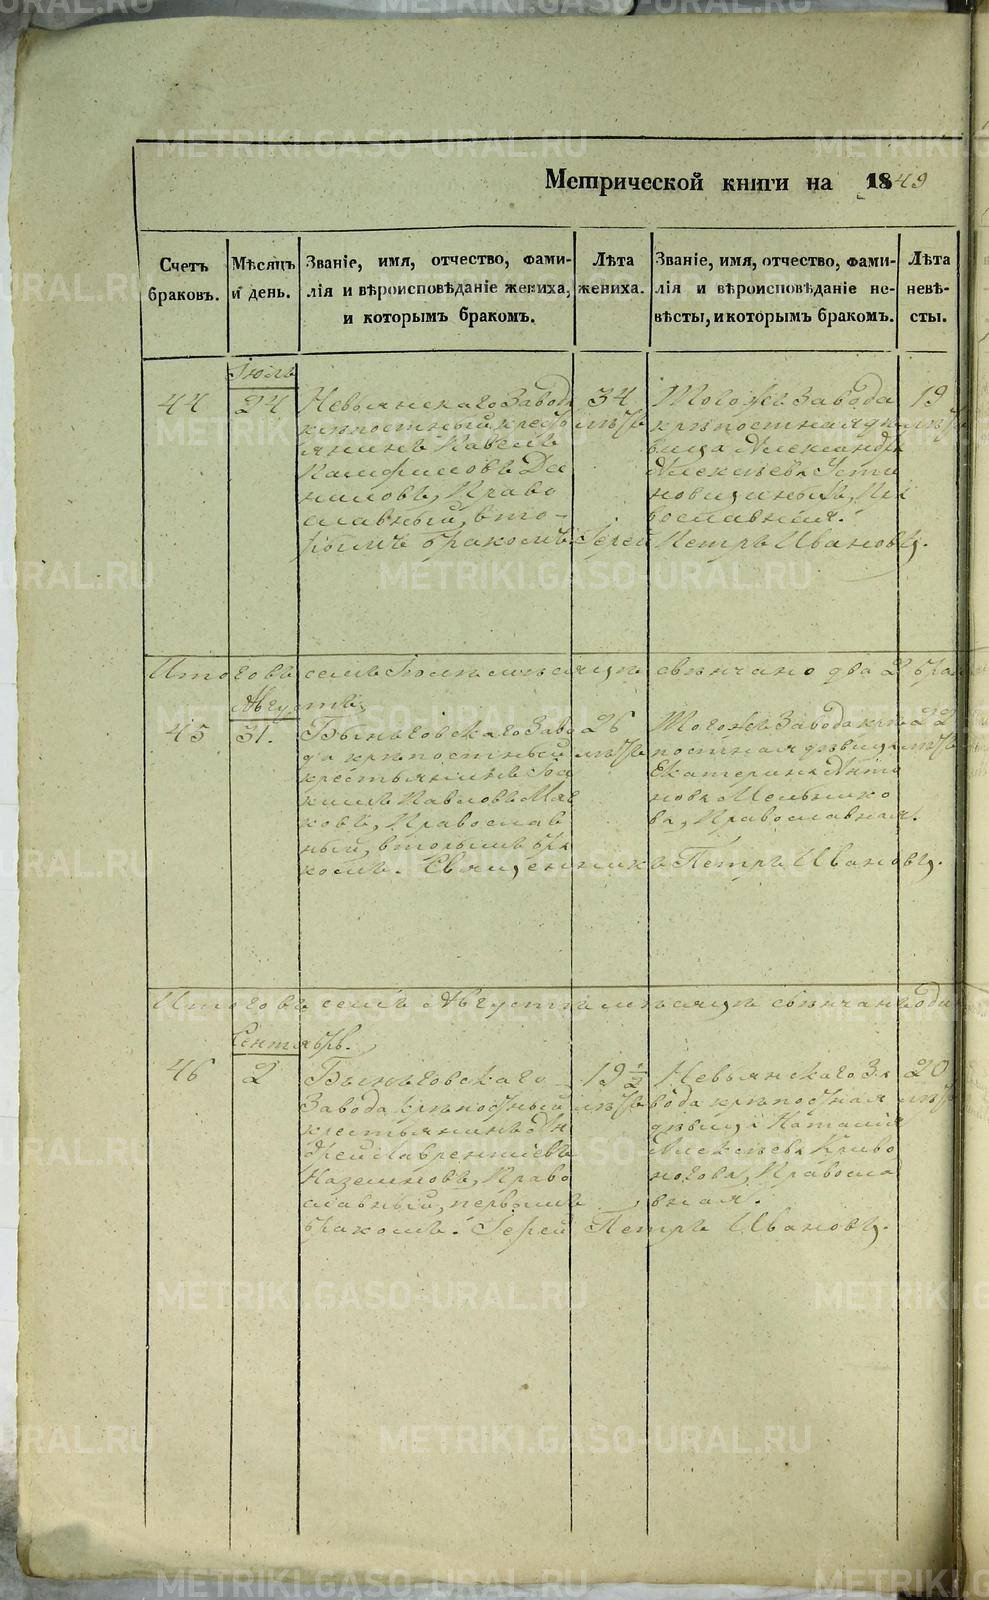 METRIKI.GASO-URAL.RU
Метрической книги на 1849
Счетъ браковъ.
Мѣсяцъ и день.
Званіе, имя, отчество, фами-
лія и вѣроисповѣданіе жениха,
и которымъ бракомъ.
Лѣта жениха.
Званіе, имя, отчество, фами-
лія и вѣроисповѣданіе не-
вѣсты, и которымъ бракомъ.
Лѣта невѣ-
сты.
Іюль
44
24
Невьянскаго Завода
крѣпостный кресть
янинъ Павелъ
Памфиловъ Да
ниловъ, Право
славный, вто-
рымъ бракомъ.
34
лѣтъ
Тогожъ Завода
крѣпостная дѣ
вица Александра
Алексѣева Усти
новщикова, Пра
вославная.
19
лѣтъ
Іерей Петръ Ивановъ.
Итого въ семъ Іюлѣ мѣсяцѣ свѣнчано два 2 бра
Августъ
45
31.
Быньговскаго Заво
да крѣпостный
крестьянинъ
Павловъ
ковъ, Православ
ный, вторымъ бра
комъ.
26
лѣтъ
Тогожъ Завода крѣ
постная дѣвица
Екатерина Анто
нова Мельнико
ва, Православная.
22
лѣтъ
Священникъ Петръ Ивановъ.
Итого въ семъ Августѣ мѣсяцѣ свѣнчанъ оди
Сентябрь.
46
2
Быньговскаго
Завода крѣпостный
крестьянинъ Ан
дрей Лаврентіевъ
Казешновъ, Право
славный, первымъ
бракомъ.
19 1/2
лѣтъ
Невьянскаго За
вода крѣпостная
дѣвица Наталія
Алексѣева Криво
ногова, Правосла
вная.
20
лѣтъ
Іерей Петръ Ивановъ.